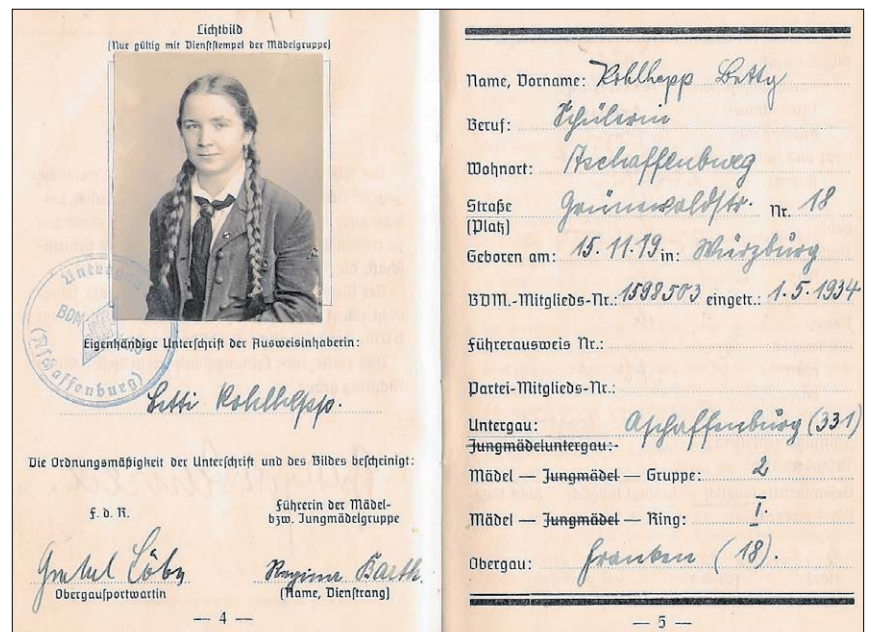 Lichtbild
(Nur gültig mit Dienststempel der Mädelgruppe)
Untergau
BDM
(Aschaffenburg)
Eigenhändige Unterschrift der Ausweisinhaberin:
Betti Kohlhepp.
Die Ordnungsmäßigkeit der Unterschrift und des Bildes bescheinigt:
F. d. R.
Führerin der Mädel-
bzw. Jungmädelgruppe
Gretel Löby
Regina Barth.
Obergausportwartin
(Name, Dienstrang)
— 4 —
Name, Vorname: Kohlhepp Betty
Beruf: Schülerin
Wohnort: Aschaffenburg
Straße Grünewaldstr. Nr. 18
(Platz)
Geboren am: 15.11.19 in: Würzburg
BDM.-Mitglieds-Nr.: 1598503 eingetr.: 1.5.1934
Führerausweis Nr.:
Partei-Mitglieds-Nr.:
Untergau: Aschaffenburg (331)
Jungmädeluntergau:
Mädel — Jungmädel — Gruppe: 2
Mädel — Jungmädel — Ring: I.
Obergau: Franken (18).
— 5 —